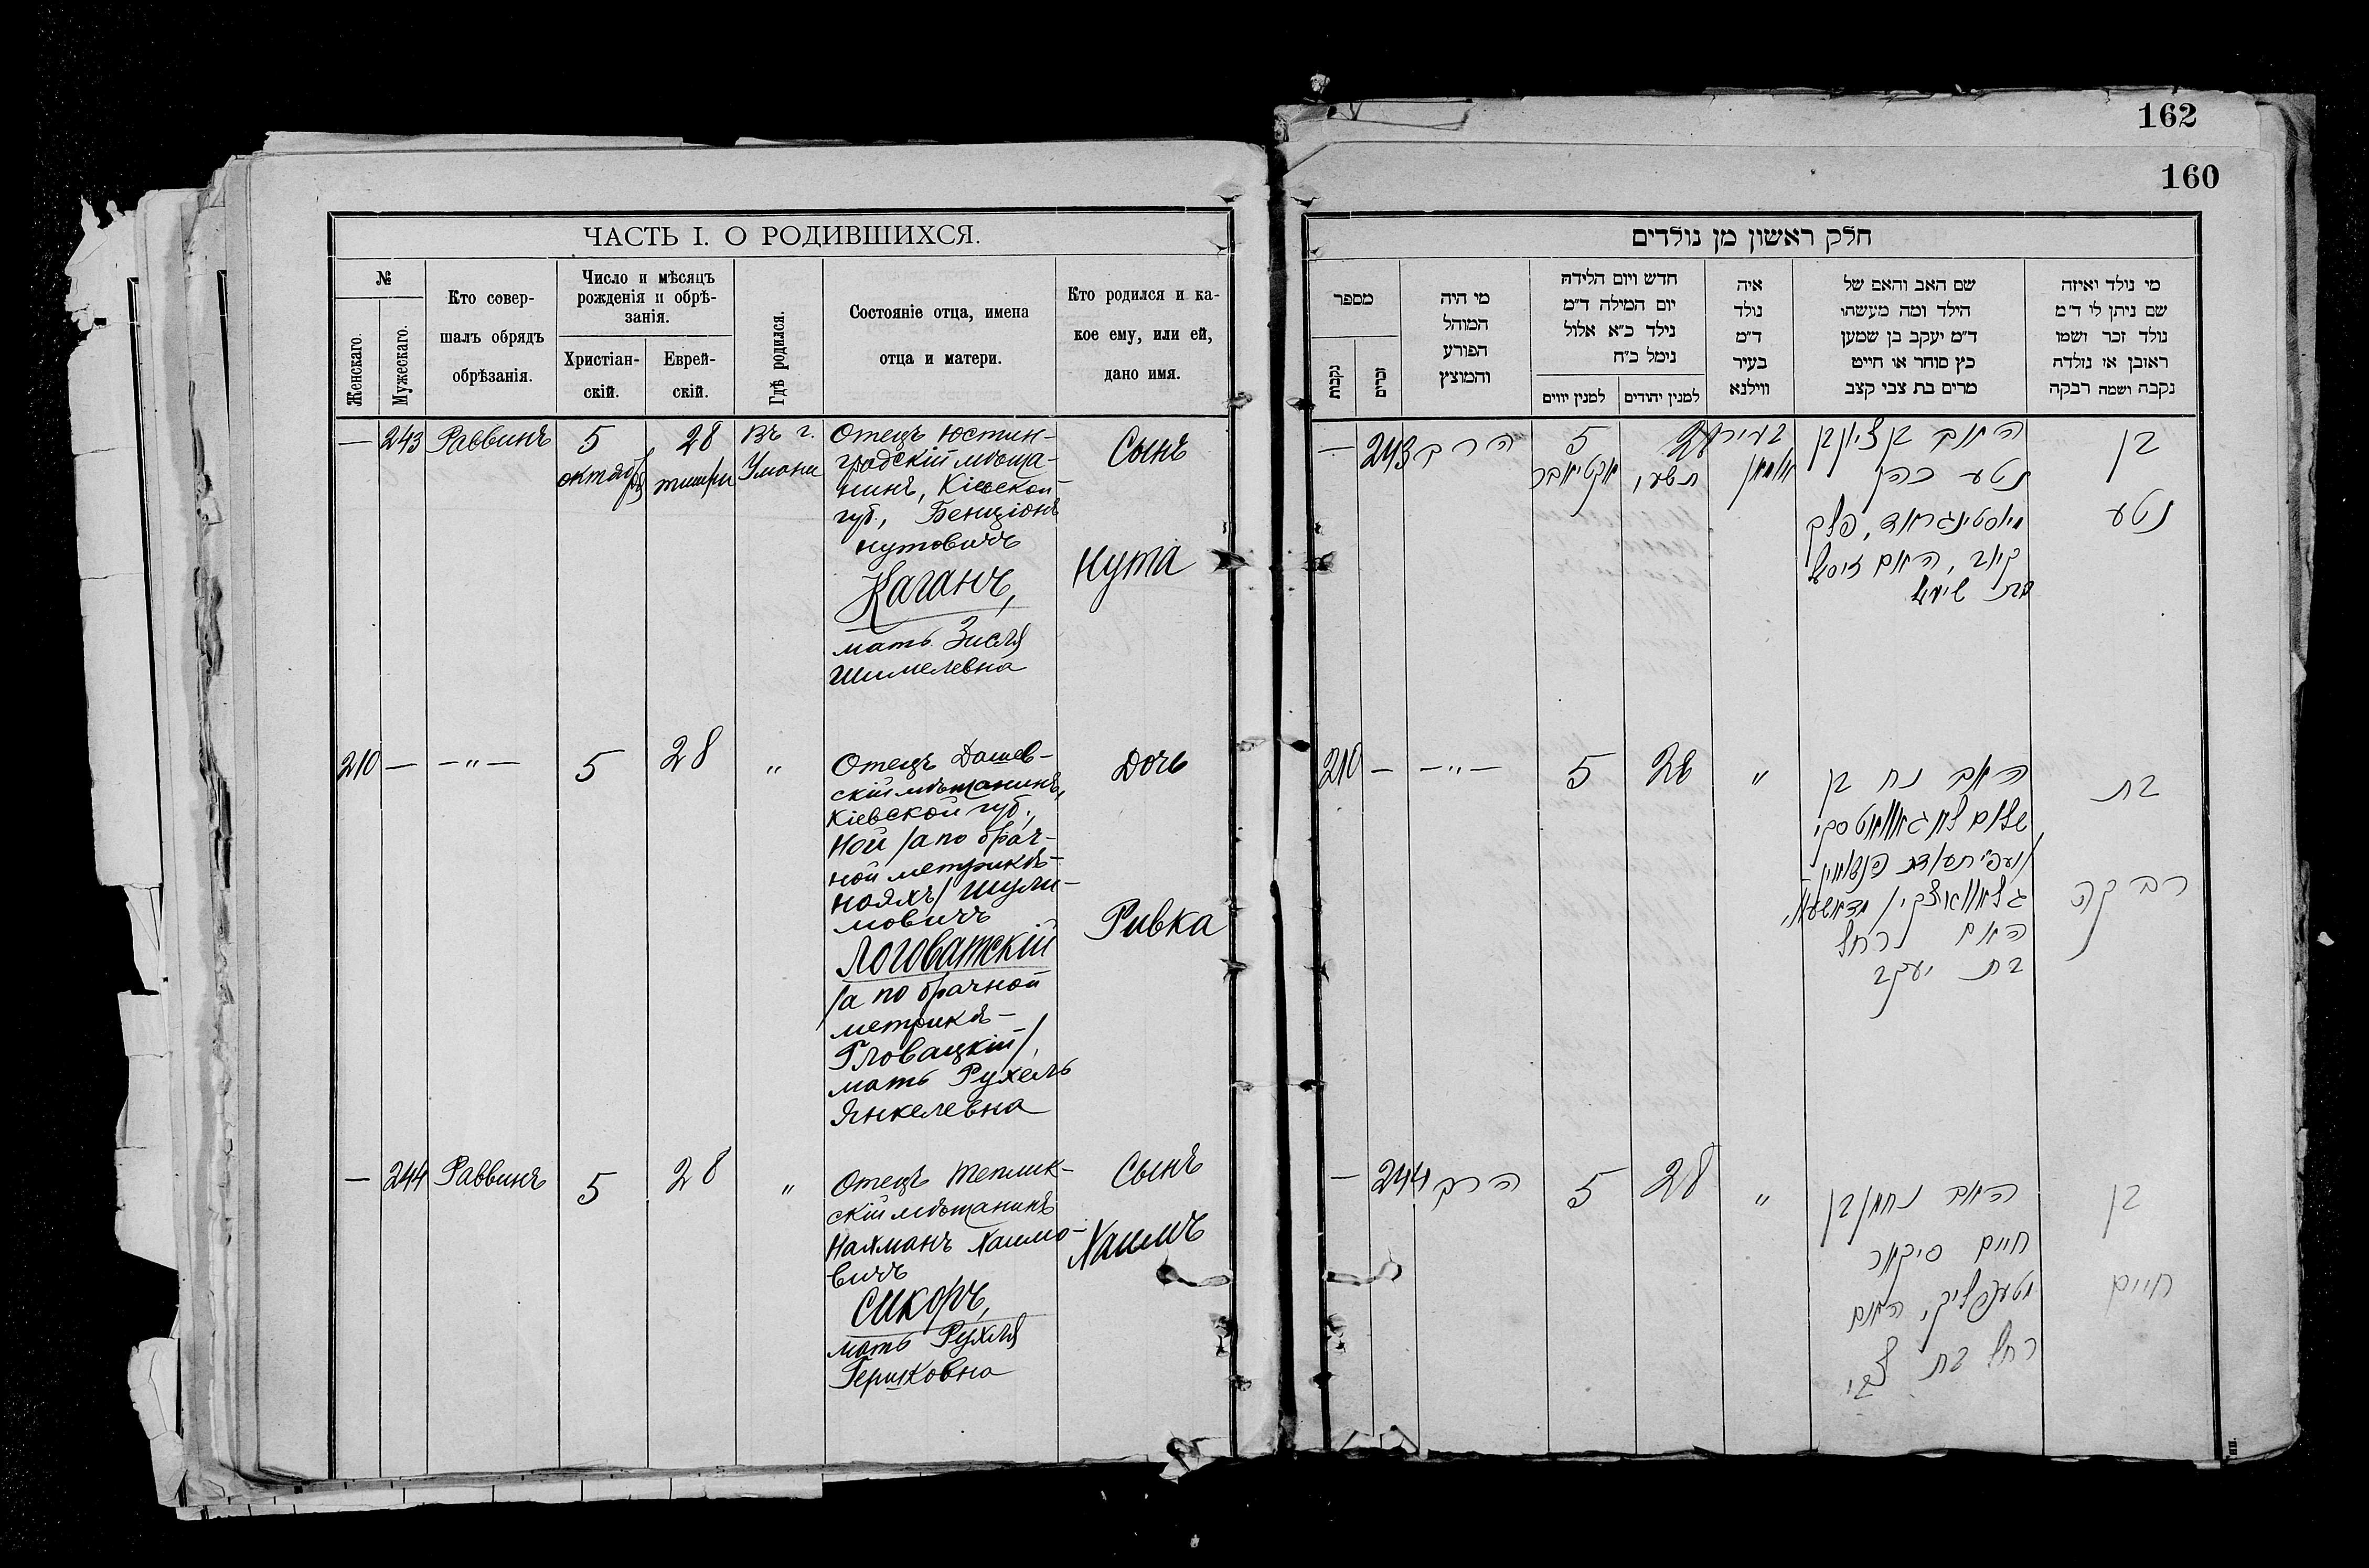 162
160
ЧАСТЬ I. О РОДИВШИХСЯ.
№
Женскаго.
Мужескаго.
Кто совер-
шалъ обрядъ
обрѣзанія.
Число и мѣсяцъ
рожденія и обрѣ-
занія.
Христіан-
скій.
Еврей-
скій.
Гдѣ родился.
Состояніе отца, имена
отца и матери.
Кто родился и ка-
кое ему, или ей,
дано имя.
— 243 Раввинъ 5 октября 28 тишри Въ г. Умани
Отецъ Юстин-
градскій мѣща-
нинъ, Кіевской
губ., Бенціонъ
Нутовичъ
Каганъ,
мать Зисля
Шимелевна
Сынъ
Нута
210 — —"— 5 28 "
Отецъ Дашев-
скій мѣщанинъ,
Кіевской губ.,
Ной /а по брач-
ной метрикѣ-
Нояхъ/ Шули-
мовичъ
Логоватскій
/а по брачной
метрикѣ —
Гловацкій/,
мать Рухель
Янкелевна
Дочь
Ривка
— 244 Раввинъ 5 28 "
Отецъ Теплик-
скій мѣщанинъ
Нахманъ Хаимо-
вичъ
Сикоръ,
мать Рухля
Гершковна
Сынъ
Хаимъ
חלק ראשון מן נולדים
מספר
נקבות
זכרים
מי היה
המוהל
הפורע
והמוצץ
חדש ויום הלידה
יום המילה ד״מ
נילד כ״א אלול
נימל כ״ח
למנין יווים
למנין יהודים
איה
נולד
ד״מ
בעיר
ווילנא
שם האב והאם של
הילד ומה מעשהו
ד״מ יעקב בן שמען
כץ סוחר או חייט
מרים בת צבי קצב
מי נולד ואיזה
שם ניתן לו ד״מ
נולד זכר ושמו
ראובן או נולדת
נקבה ושמה רבקה
— 243 הרב 5 אקטיאבר 28 תשרי בעיר אומאן
האב בן ציון בן
נטע כהן
יוסטינגראד, פלך
קיוב, האם זיסל
בת שימל
בן
נטע
210 — —"— 5 28 "
האב נח בן
שלום לאגאוואטסקי
האם רחל
בת יעקב
בת
רבקה
— 244 הרב 5 28 "
האב נחמן בן
חיים סיקאר
מטעפליק, האם
רחל בת צבי
בן
חיים